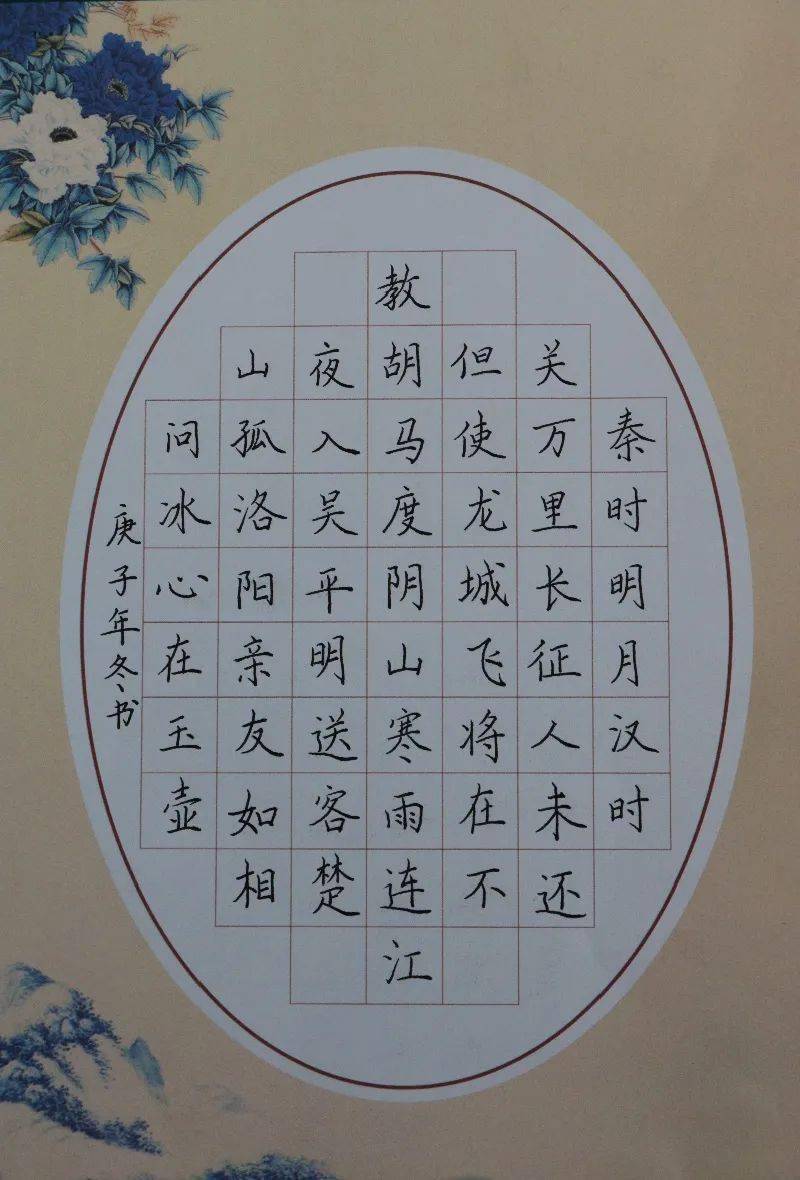 秦时明月汉时
关万里长征人未还
但使龙城飞将在不
教胡马度阴山寒雨连江
夜入吴平明送客楚
山孤洛阳亲友如相
问冰心在玉壶
庚子年冬书